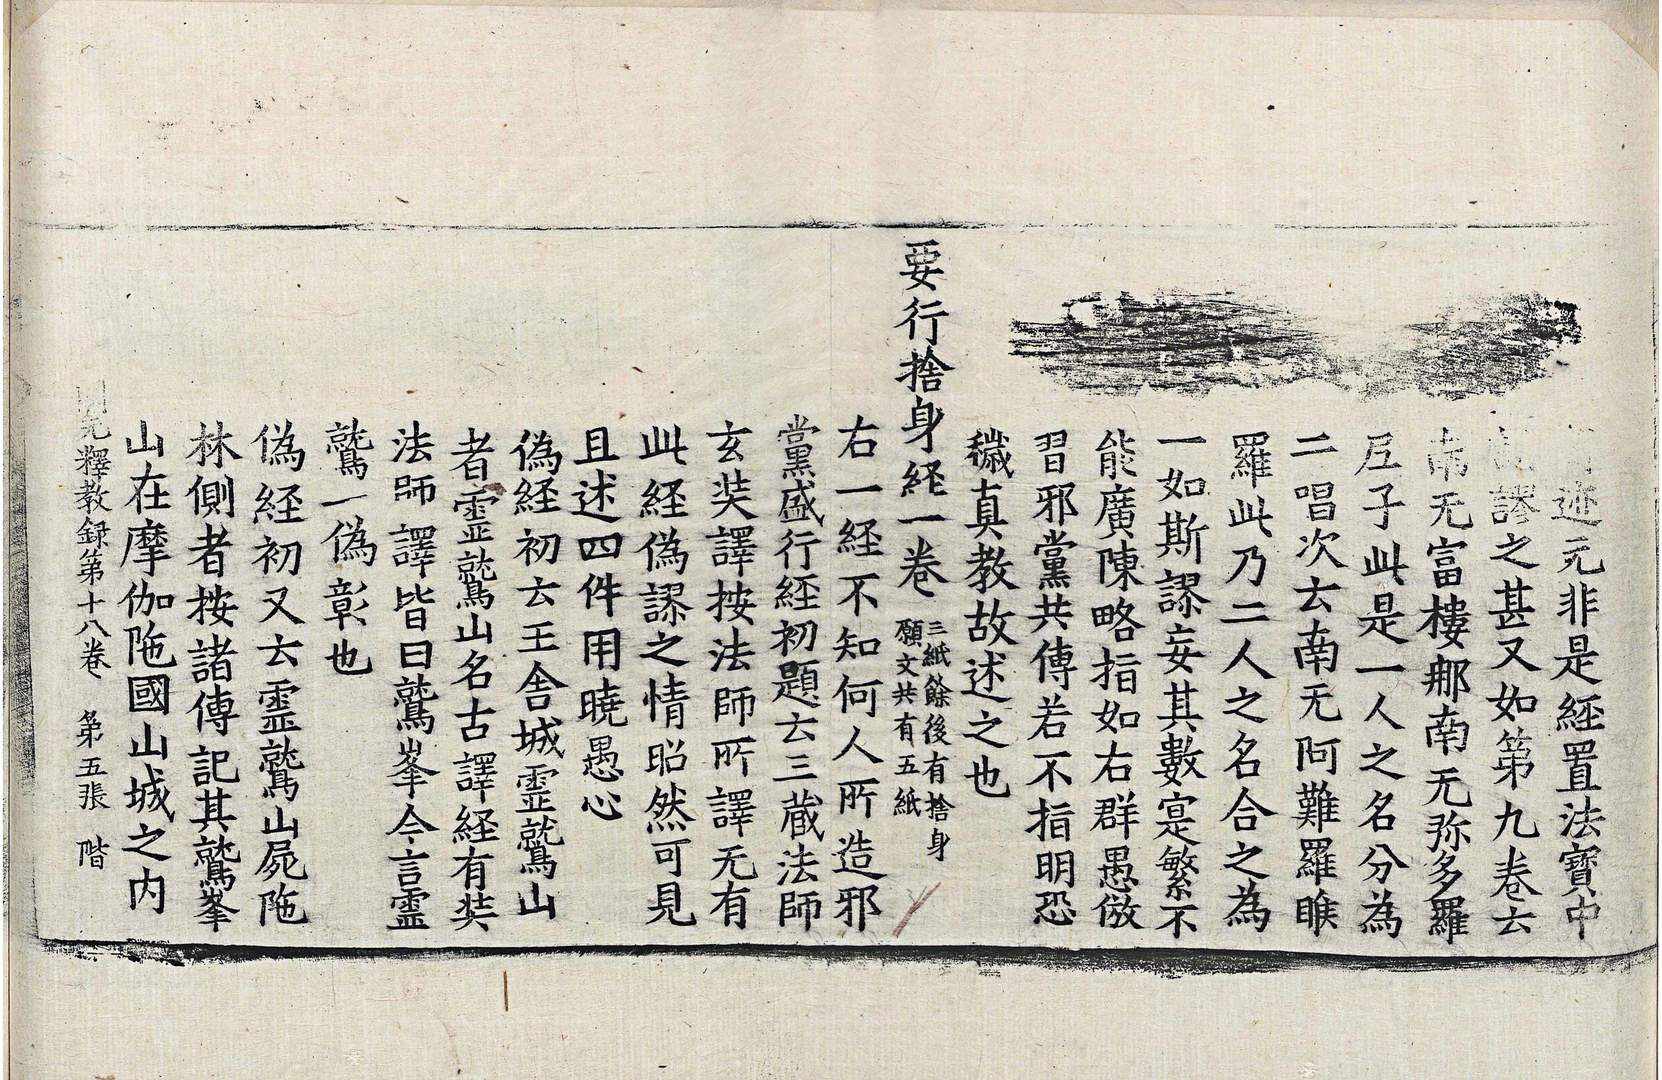 迹元非是経置法寶中
謬之甚又如第九巻云
南无富樓那南无弥多羅
尼子此是一人之名分為
二唱次云南无阿難羅睺
羅此乃二人之名合之為
一如斯謬妄其數寔繁不
能廣陳略指如右群愚倣
習邪黨共傳若不指明恐
穢真教故述之也
要行捨身経一巻 三紙餘後有捨身
願文共有五紙
右一経不知何人所造邪
黨盛行経初題云三蔵法師
玄奘譯按法師所譯无有
此経偽謬之情昭然可見
且述四件用曉愚心
偽経初云王舎城霊鷲山
者霊鷲山名古譯経有奘
法師譯皆曰鷲峯今言霊
鷲一偽彰也
偽経初又云霊鷲山屍陁
林側者按諸傳記其鷲峯
山在摩伽陁國山城之内
開元釋教録第十八巻 第五張 階